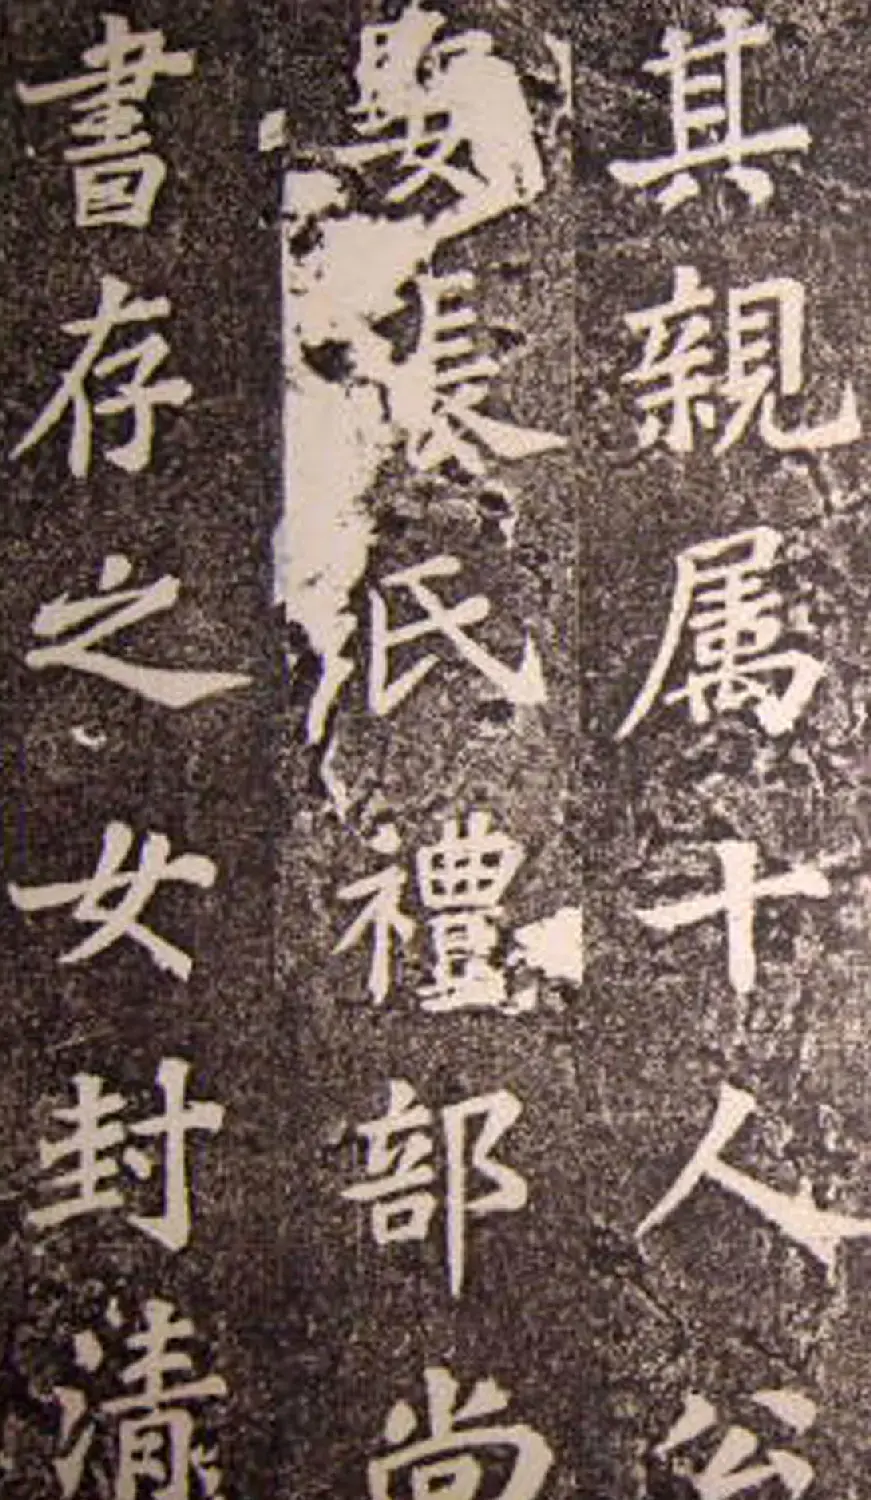 其親属十人公
娶張氏禮部尚
書存之女封清